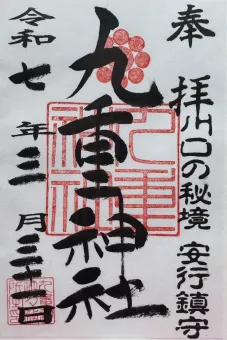 奉拝
川口の秘境 安行鎮守
九重神社
令和七年三月三十一日
九重神社